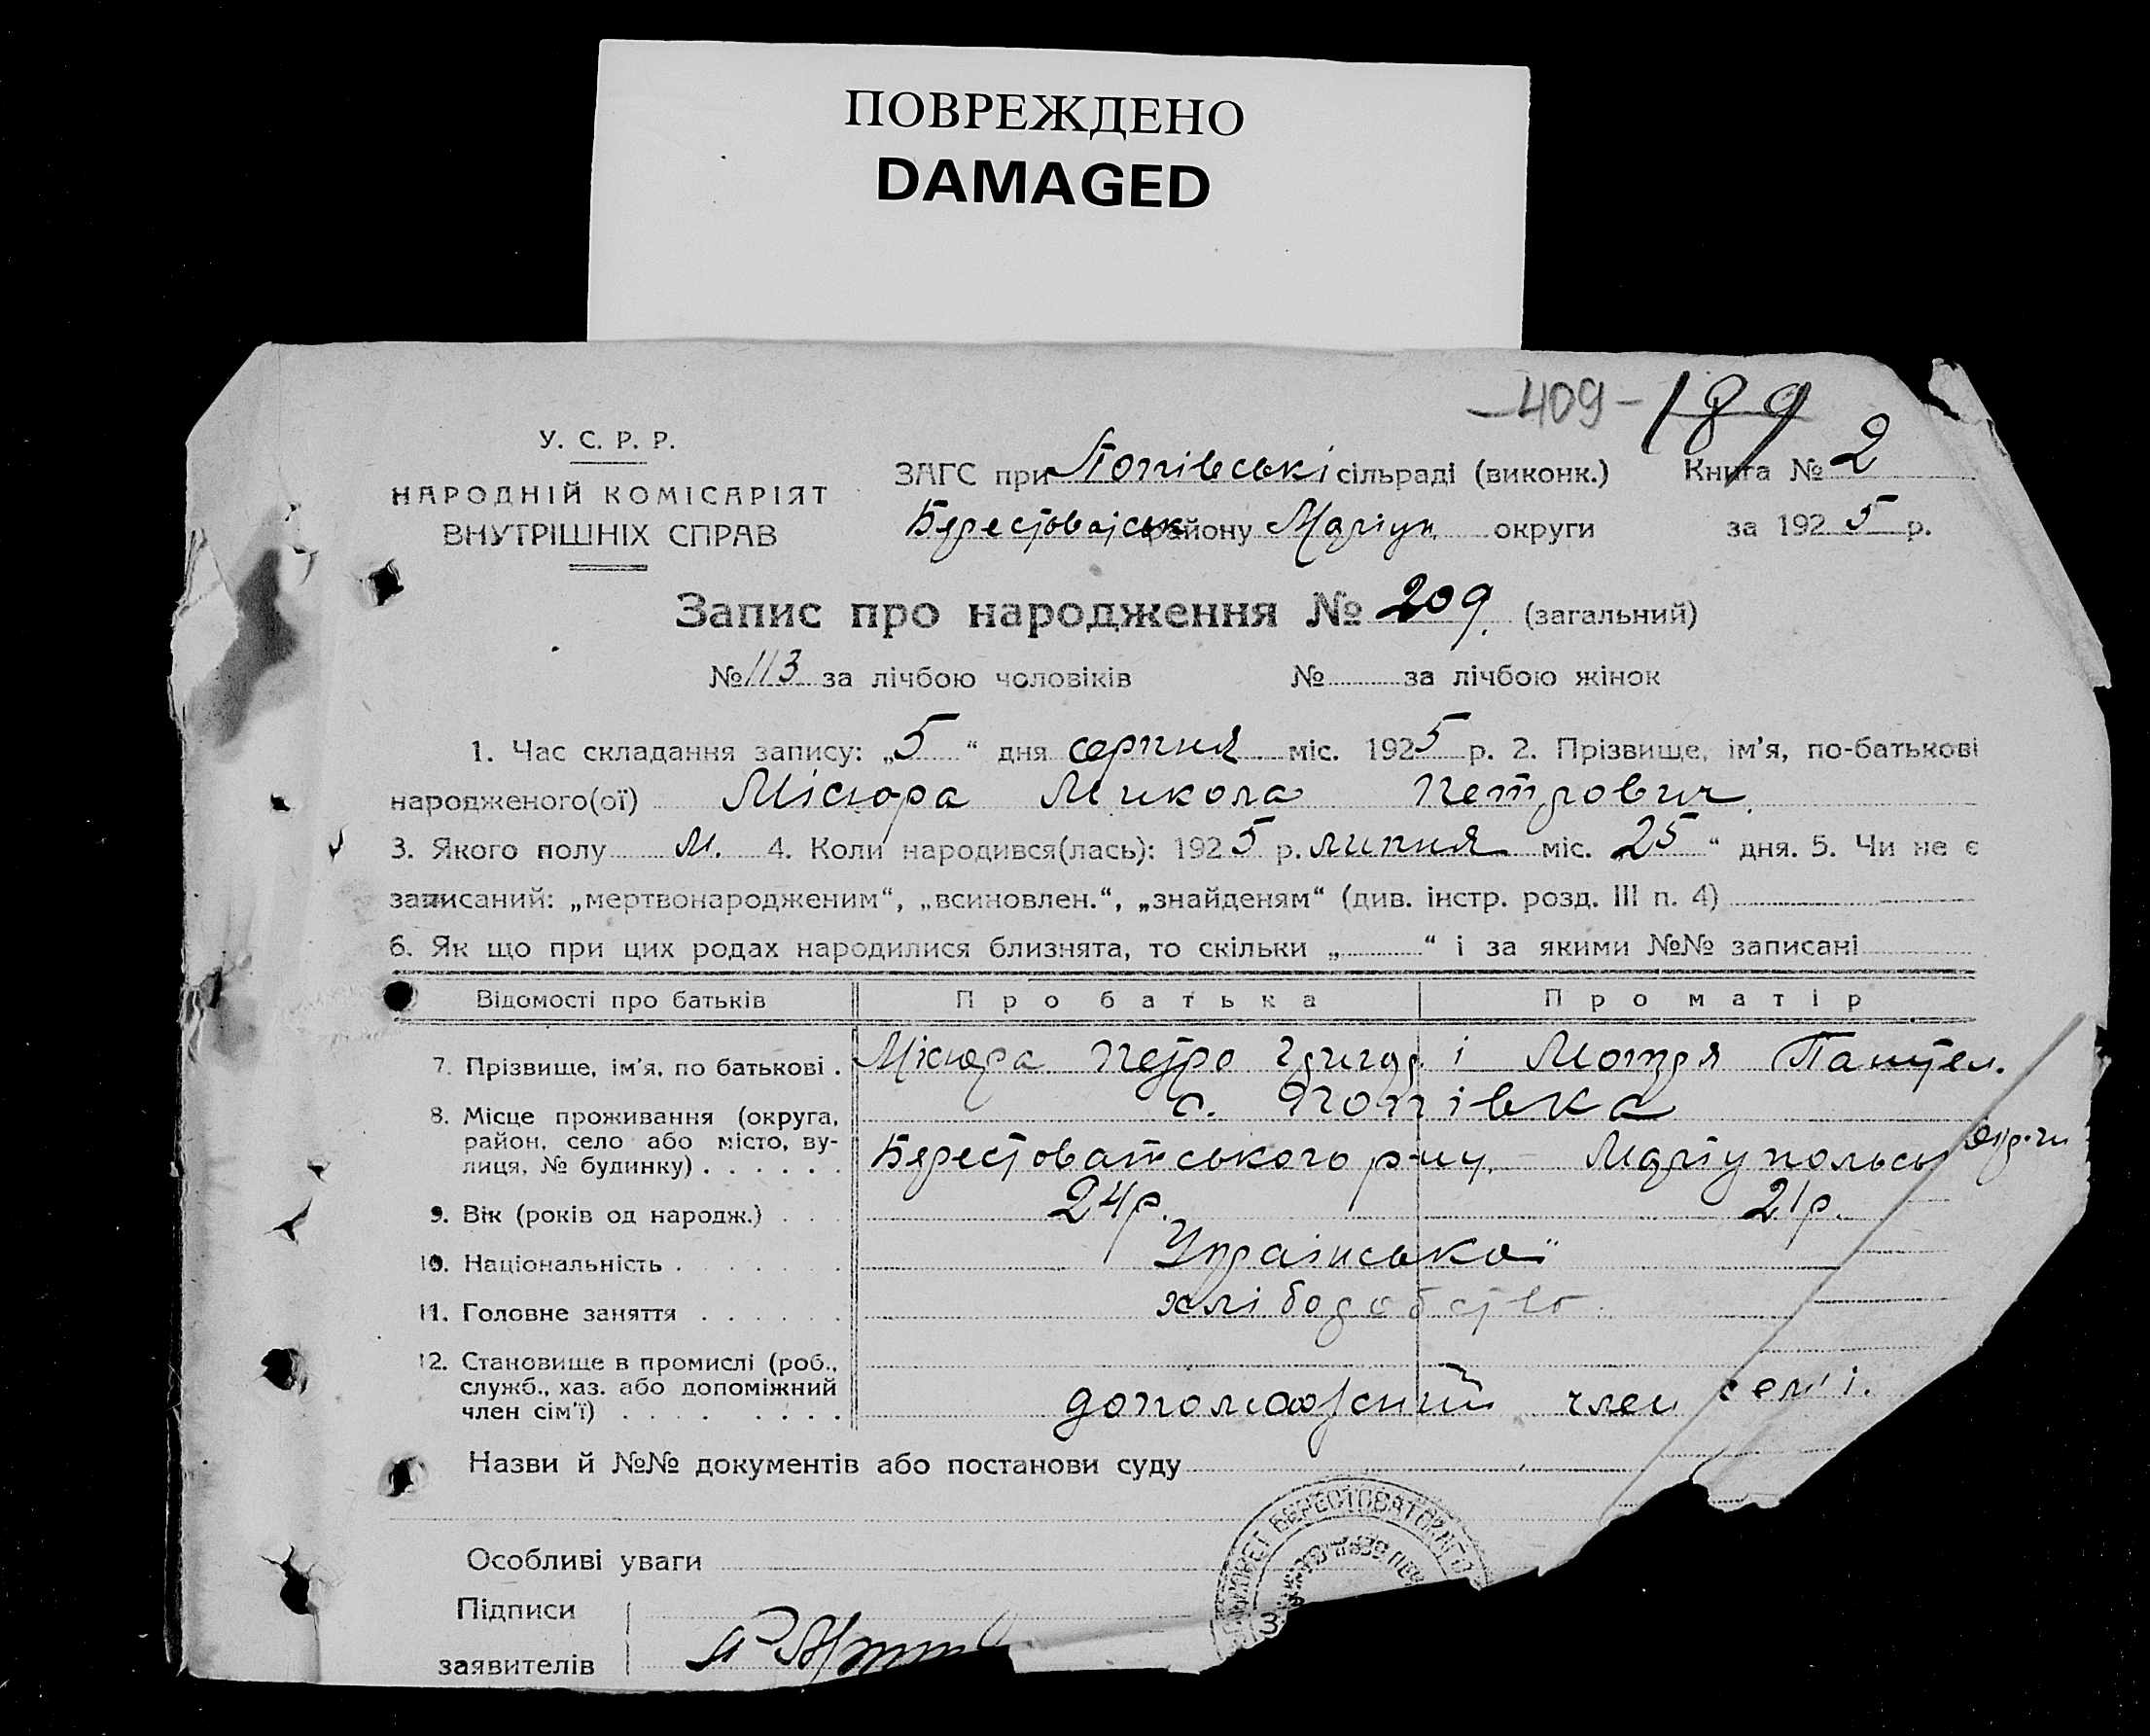 ПОВРЕЖДЕНО
DAMAGED
-409- 189
У. С. Р. Р.
НАРОДНІЙ КОМІСАРІЯТ
ВНУТРІШНІХ СПРАВ
ЗАГС при Попівські сільраді (виконк.) Книга № 2
району Маріуп. округи за 1925 р.
Запис про народження № 209. (загальний)
№ 113 за лічбою чоловіків № за лічбою жінок
1. Час складання запису: „5“ дня серпня міс. 1925 р. 2. Прізвище, ім’я, по-батькові
народженого(ої) Місюра Микола Петрович.
3. Якого полу м. 4. Коли народився(лась): 1925 р. липня міс. 25“ дня. 5. Чи не є
записаний: „мертвонародженим“, „всиновлен.“, „знайденям“ (див. інстр. розд. III п. 4)
6. Як що при цих родах народилися близнята, то скільки „ “ і за якими №№ записані
Відомості про батьків Про батька Про матір
7. Прізвище, ім’я, по батькові . Місюра Петро Григор. і Мотря Пантел.
8. Місце проживання (округа, с. Попівка
район, село або місто, ву-
лиця, № будинку) . . . . . . Берестоватського р-ну, Маріупольськ округи
9. Вік (років од народж.) . . . 24 р. 21 р.
10. Національність . . . . . . . Української
11. Головне заняття . . . . . . хліборобство
12. Становище в промислі (роб.,
служб., хаз. або допоміжний
член сім’ї) . . . . . . . . допоможний член сем'ї.
Назви й №№ документів або постанови суду
БЕРЕСТОВАТСКАГО
Особливі уваги
Підписи
заявителів